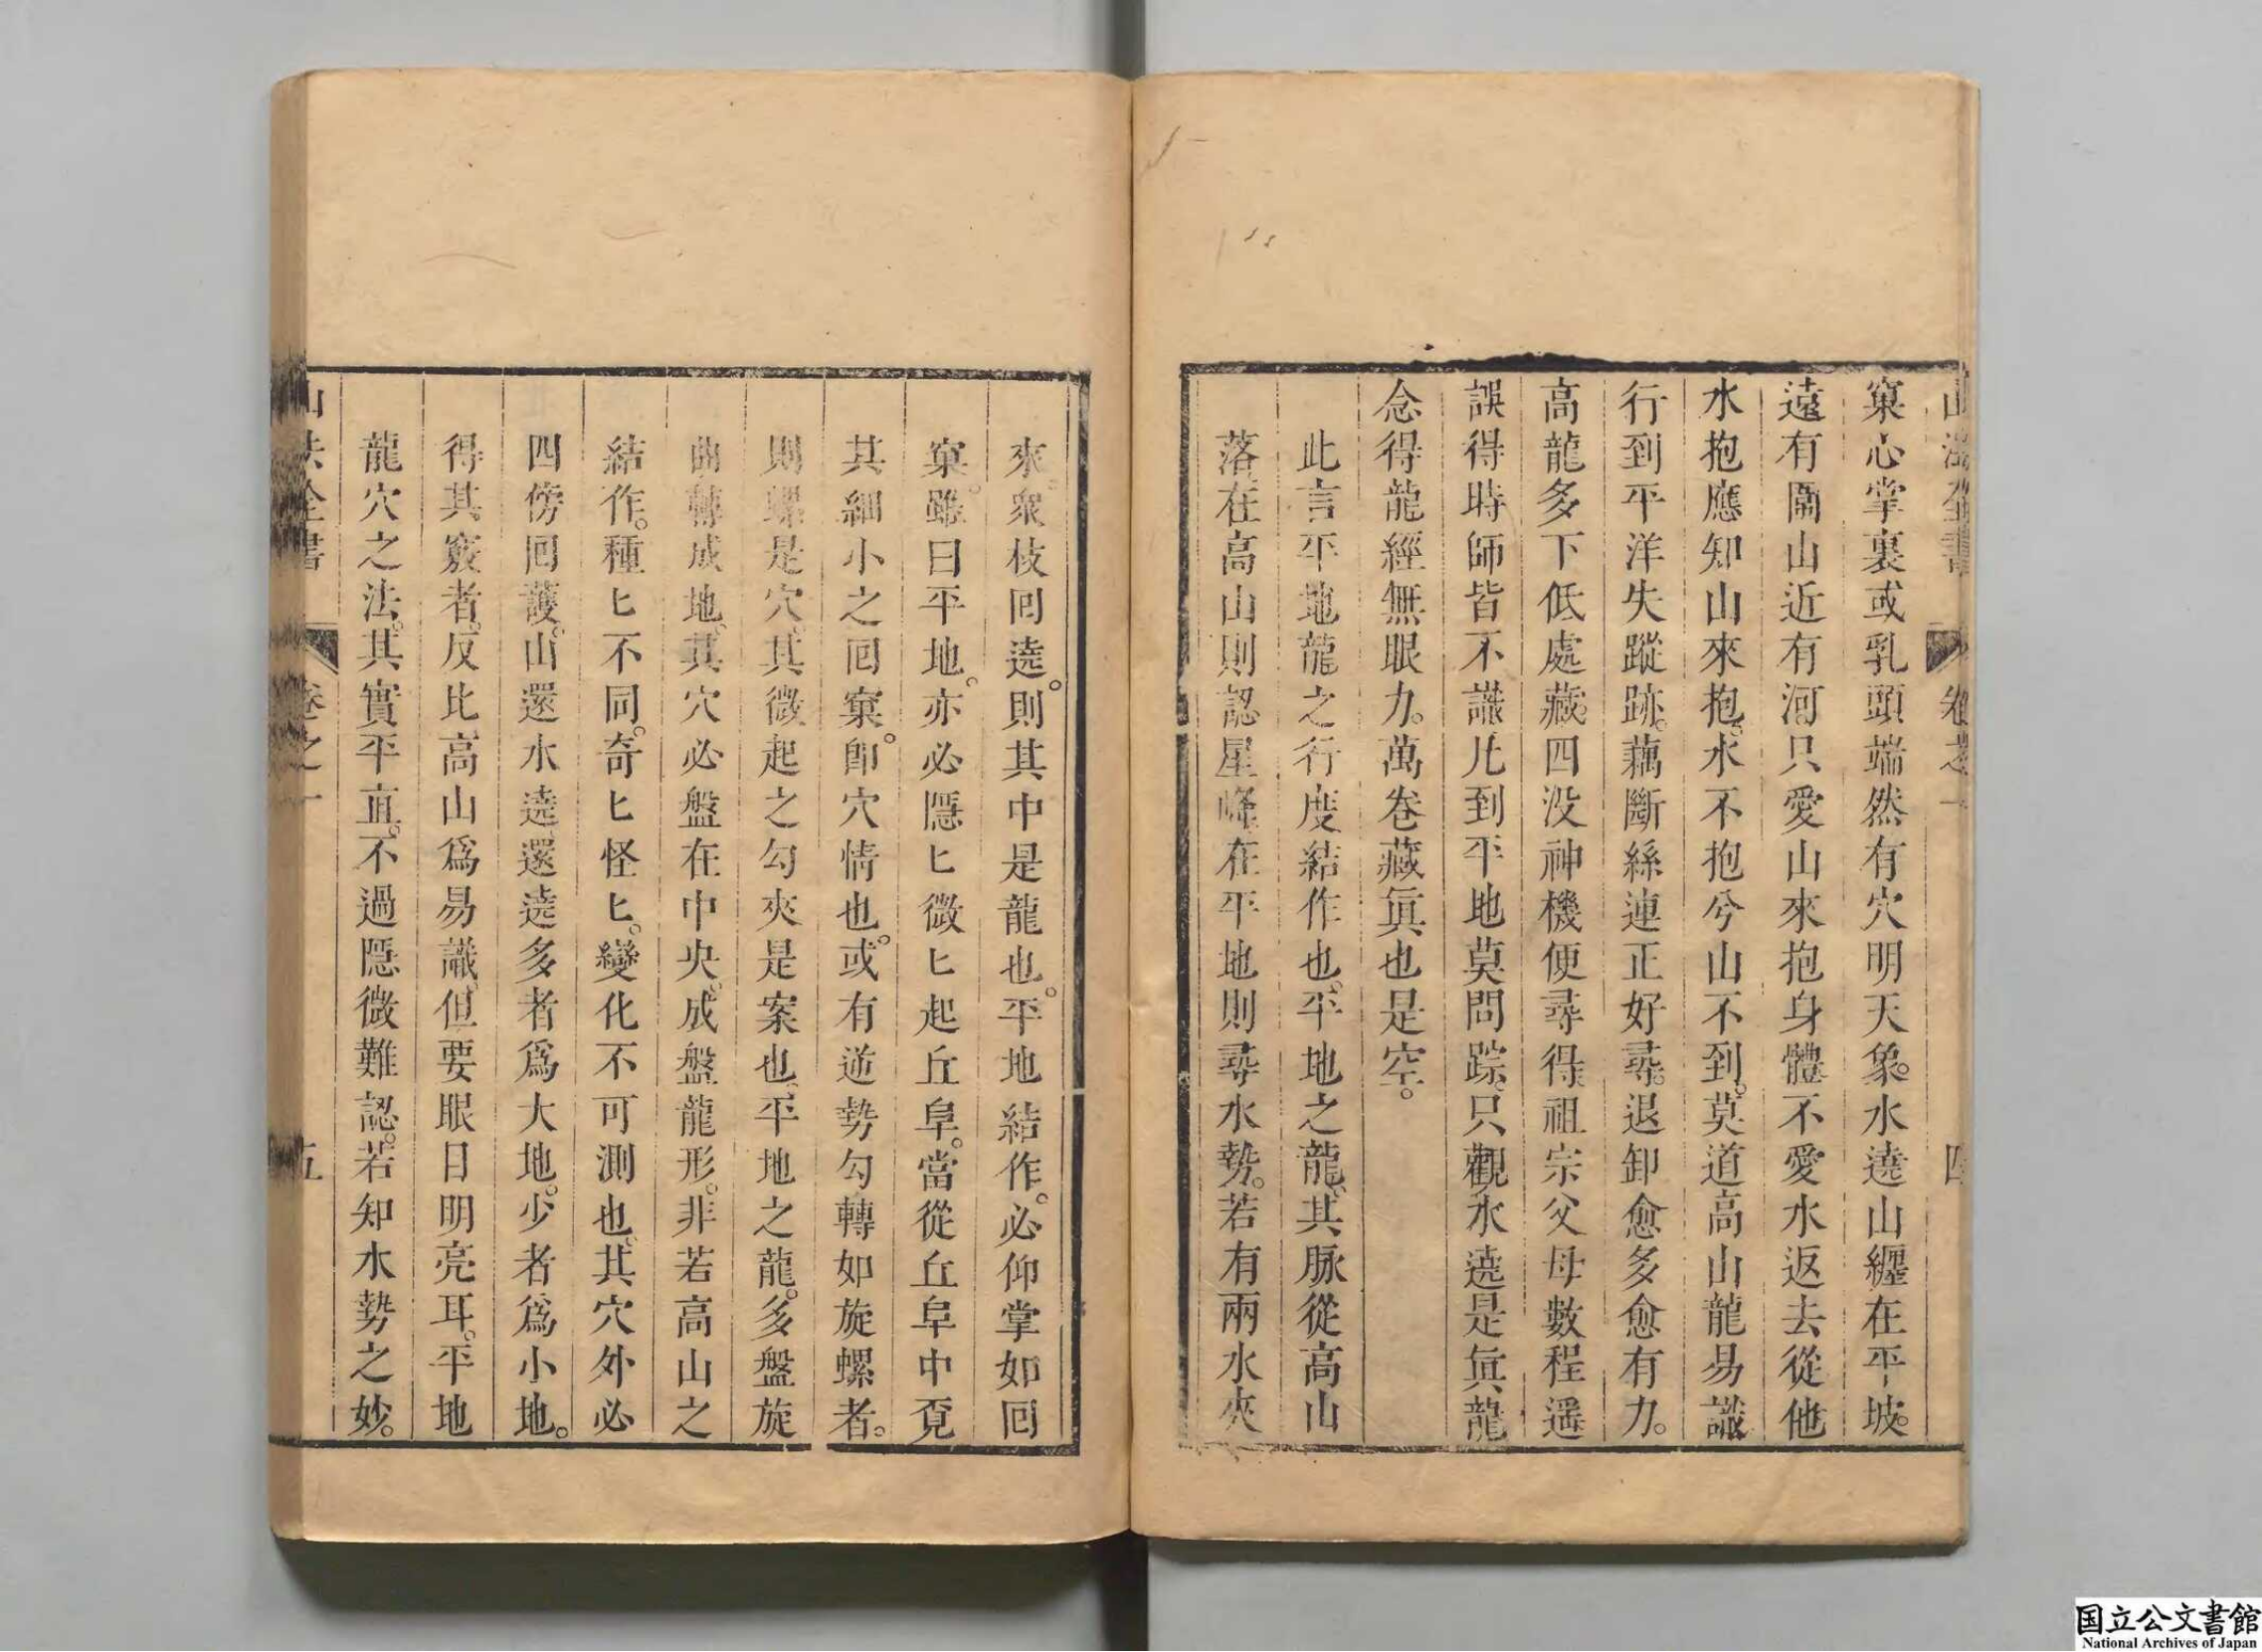 山法全書 卷之一 四
窠心掌裏或乳頭端然有穴明天象。水遶山纒在平坡。
遠有圍山近有河只愛山來抱身體不愛水返去從他
水抱應知山來抱。水不抱兮山不到。莫道高山龍易識
行到平洋失蹤跡。藕斷絲連正好尋。退卸愈多愈有力。
高龍多下低處藏。四没神機便尋得。祖宗父母數程遥
誤得時師皆不識凡到平地莫問踪。只觀水遶是眞龍
念得龍經無眼力。萬卷藏眞也是空。
此言平地龍之行度結作也。平地之龍。其脉從高山
落在高山則認星峰在平地則尋水勢。若有兩水夾
來。衆枝囘遶。則其中是龍也。平地結作。必仰掌如囘
窠。雖曰平地。亦必隱匕微匕起丘阜。當從丘阜中覔
其細小之囘窠。卽穴情也。或有逆勢勾轉如旋螺者。
則螺是穴。其微起之勾夾是案也。平地之龍。多盤旋
曲轉成地。其穴必盤在中央。成盤龍形。非若高山之
結作。種匕不同。奇匕怪匕。變化不可測也。其穴外必
四傍囘護。山還水遶。還遶多者爲大地。少者爲小地。
得其竅者。反比高山爲易識。但要眼目明亮耳。平地
龍穴之法。其實平直。不過隱微難認。若知水勢之妙。
山法全書 卷之一 五
国立公文書館
National Archives of Japan